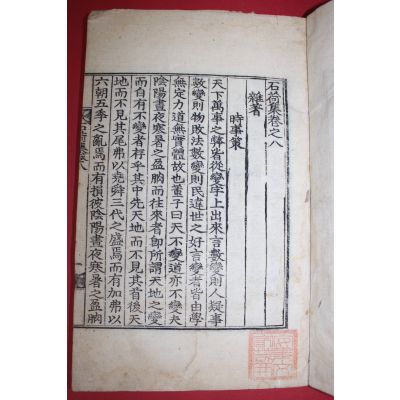 石荷集卷之八
雜著
時事策
天下萬事之弊皆從變字上出來言數變則人疑事
數變則物敗法數變則民違世之好言變者皆由學
無定力道無實體故也董子曰天不變道亦不變夫
陰陽晝夜寒暑之盈朒而往來者卽所謂天地之變
而自有不變者存乎其中先天地而不見其首後天
地而不見其尾弗以堯舜三代之盛焉而有加弗以
六朝五季之亂焉而有損彼陰陽晝夜寒暑之盈朒